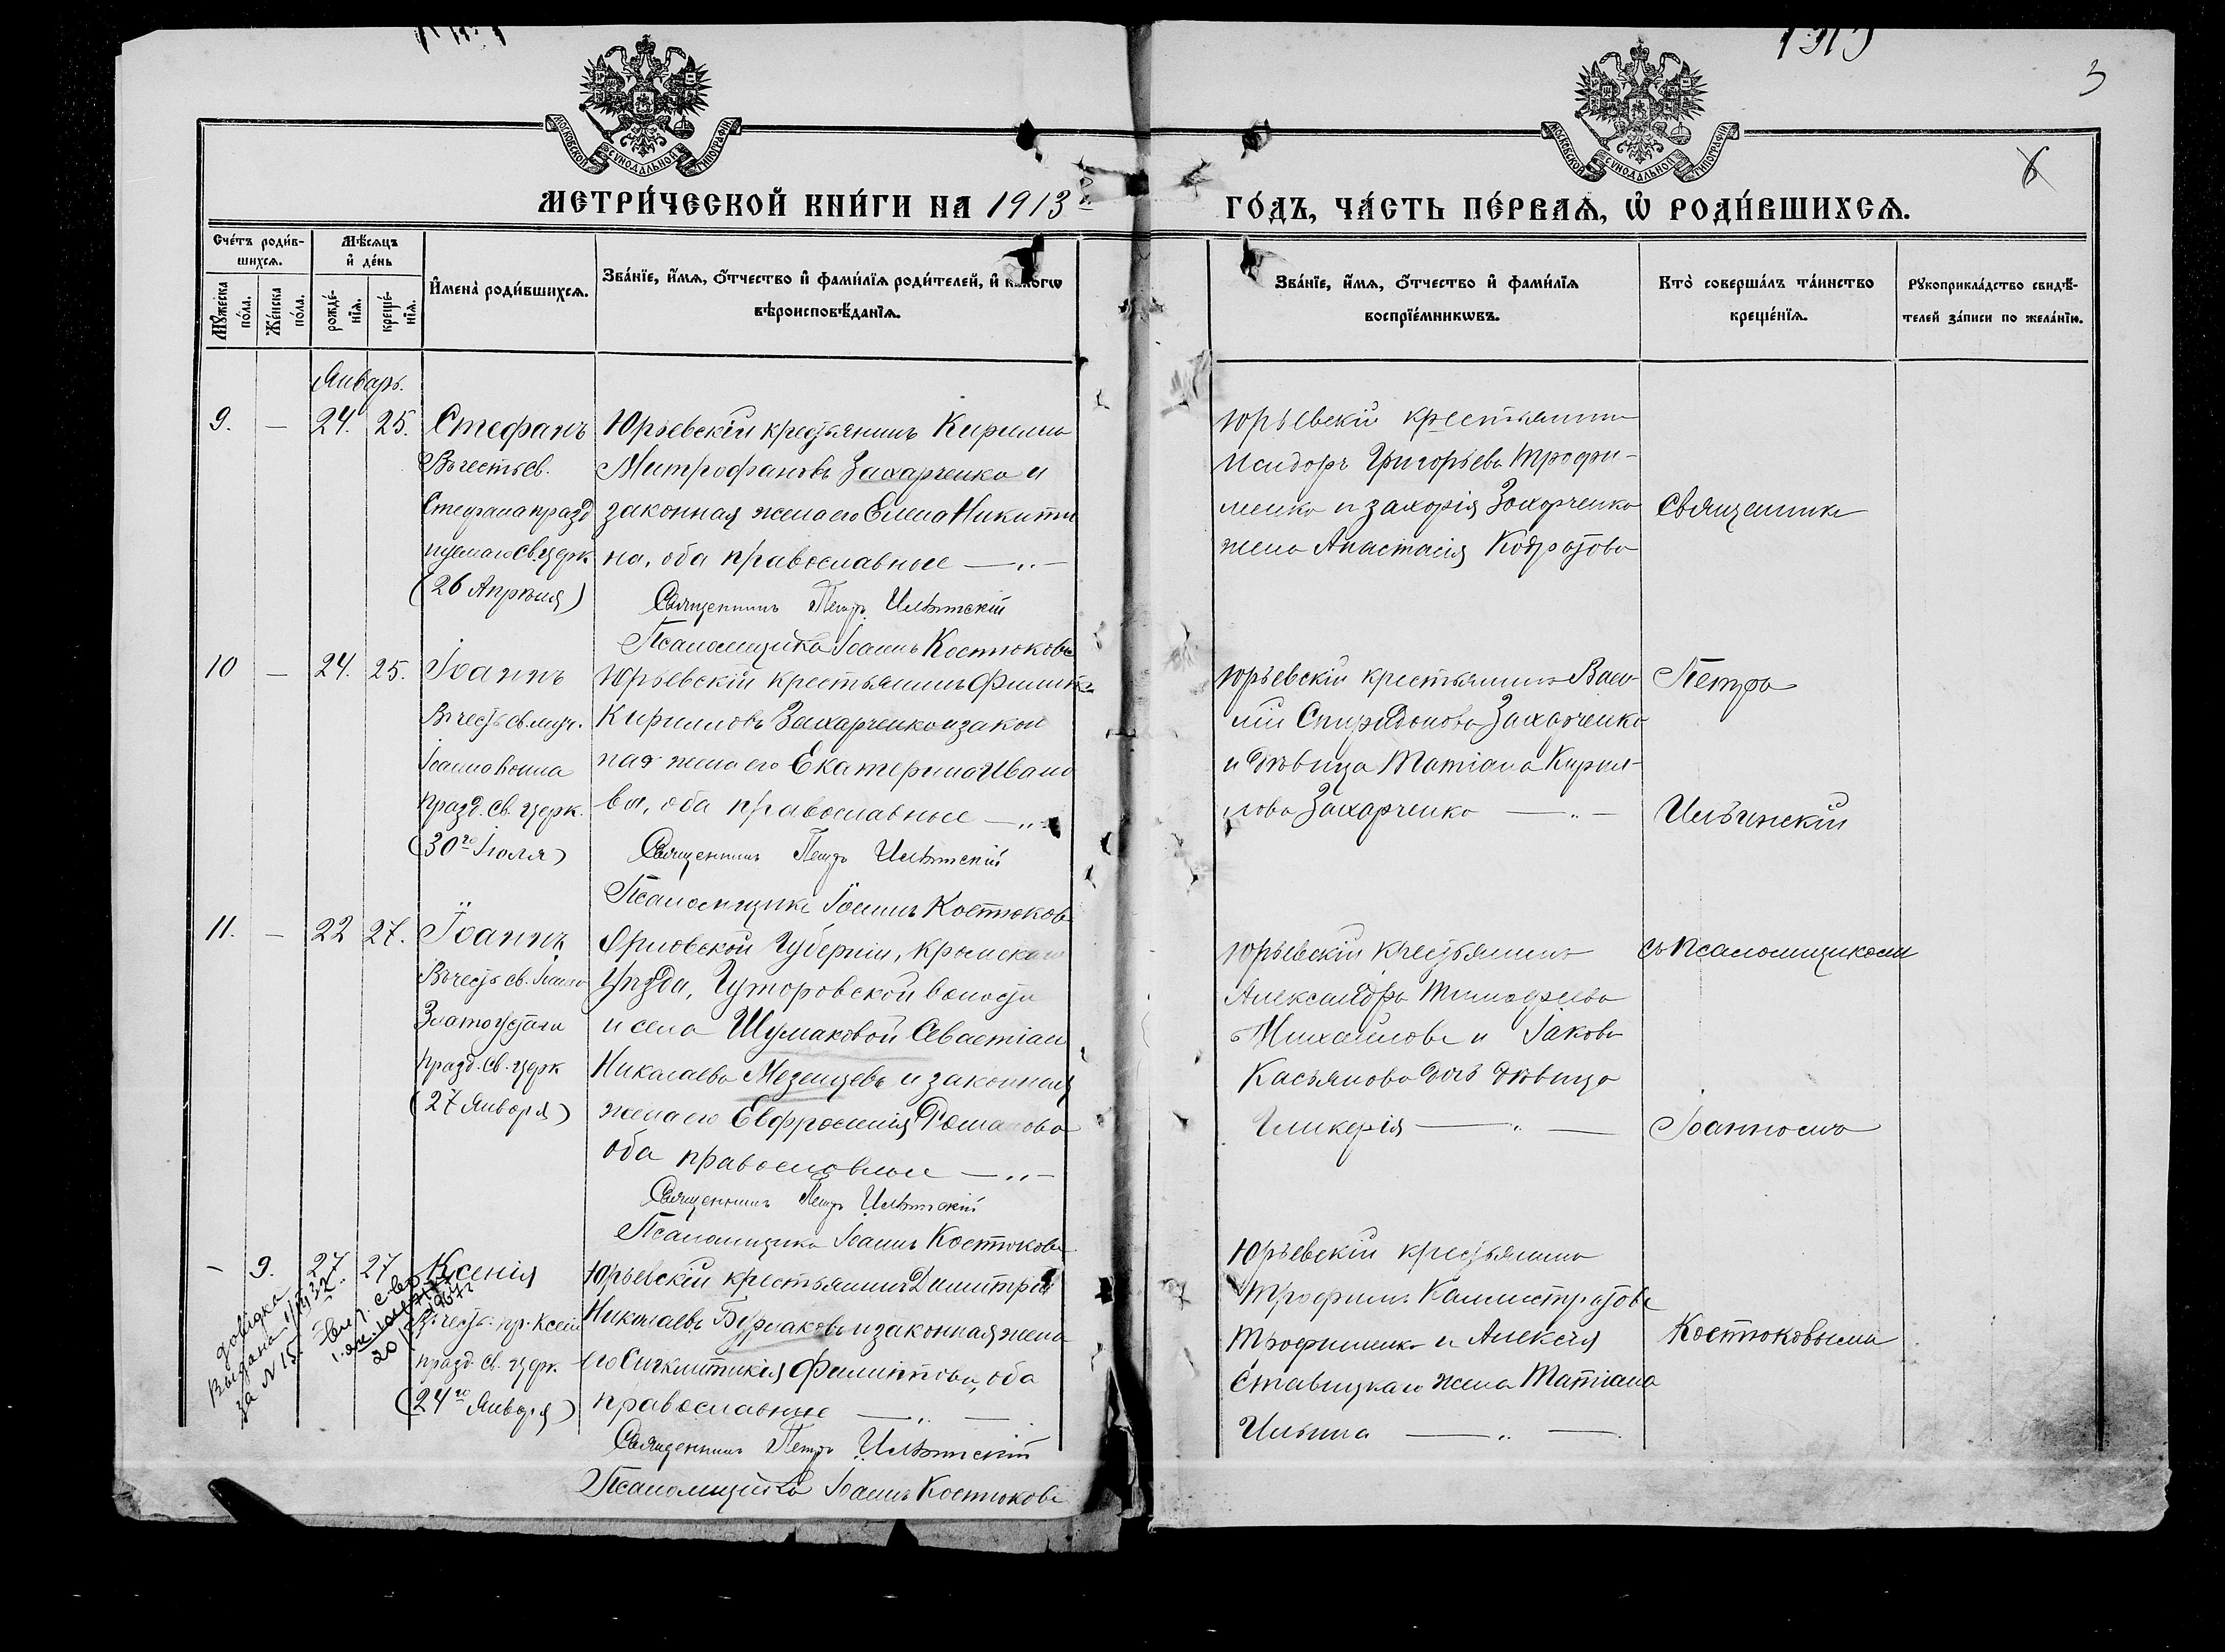 1913
3
6
МОСКОВСКОЙ СѴНОДАЛЬНОЙ ТИПОГРАФІИ
МОСКОВСКОЙ СѴНОДАЛЬНОЙ ТИПОГРАФІИ
МЕТРИ́ЧЕСКОЙ КНИ́ГИ НА 1913й
ГО́ДЪ, ЧА́СТЬ ПЕ́РВАѦ, Ѽ РОДИ́ВШИХСѦ.
Сче́тъ роди́в-
шихсѧ.
Мꙋ́жеска
по́ла.
Же́нска
по́ла.
Мѣ́сѧцъ
и҆ де́нь
рожде́-
нїѧ.
креще́-
нїѧ.
И҆мена̀ роди́вшихсѧ.
Зва́нїе, и҆́мѧ, ѻ҆́тчество и҆ фами́лїѧ роди́телей, и҆ како́гѡ
вѣроисповѣ́данїѧ.
Зва́нїе, и҆́мѧ, ѻ҆́тчество и҆ фами́лїѧ
воспрїе́мникѡвъ.
Кто̀ соверша́лъ та́инство
креще́нїѧ.
Рꙋкоприкла́дство свидѣ́-
телей за́писи по жела́нїю.
Январь.
9. — 24. 25. Стефанъ
Въ честь св.
Стефана празд
нуемаго св. церк.
(26 Апрѣля)
Юрьевскій крестьянинъ Кириллъ
Митрофановъ Захарченко и
законная жена его Елена Никити
на, оба православные —„—
Священникъ Петръ Ильинскій
Псаломщикъ Іоаннъ Костюковъ
Юрьевскій крестьянинъ
Исидоръ Григорьевъ Трофи-
менко и Захорія Захорченко
жена Анастасія Кодратова
Священникъ
10 — 24. 25. Іоаннъ
Въ честь св. муч.
Іоанна воина
празд. св. церк.
(30го Іюля)
Юрьевскій крестьянинъ Филиппъ
Кирилловъ Захарченко и закон
ная жена его Екатерина Ивано
ва, оба православные —„—
Священникъ Петръ Ильинскій
Псаломщикъ Іоаннъ Костюковъ
Юрьевскій крестьянинъ Васи-
лій Спиридоновъ Захарченко
и дѣвица Татіана Кирил-
лова Захарченко —„—
Петръ
Ильинскій
11. — 22 27. Іоаннъ
Въ честь св. Іоанна
Златоустаго
празд. св. церк
(27 Января)
Орловской Губерніи, Кромскаго
Уѣзда, Гуторовской волости
и села Шумаковой Севастіан
Николаевъ Мезенцевъ и законная
жена его Евфросинія Романова
оба православные —„—
Священникъ Петръ Ильинскій
Псаломщикъ Іоаннъ Костюковъ
Юрьевскій крестьянинъ
Александръ Тимофеевъ
Михайловъ и Іакова
Касьянова дочь дѣвица
Гликерія —„—
съ псаломщикомъ
Іоанномъ
— 9. 27 27 Ксенія
Въ честь пр. Ксеніи
празд. св. церк.
(24го Января)
Юрьевскій крестьянинъ Димитрій
Николаевъ Бурлаковъ и законная жена
его Синклитикія Филиппова, оба
православные —„—
Священникъ Петръ Ильинскій
Псаломщикъ Іоаннъ Костюковъ
Юрьевскій крестьянинъ
Трофимъ Каллистратовъ
Трофименко и Алексія
Ставицкаго жена Татіана
Ильина —„—
Костюковымъ
довідка
Выдана
за N 15.